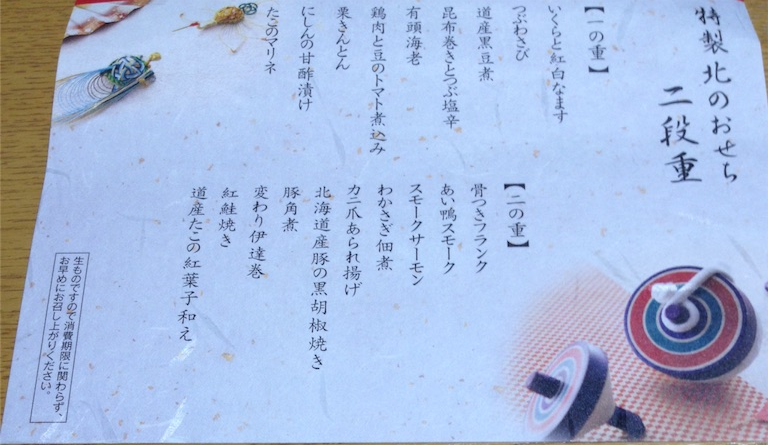 特製 北のおせち
二段重
【一の重】
いくらと紅白なます
つぶわさび
道産黒豆煮
昆布巻きとつぶ塩辛
有頭海老
鶏肉と豆のトマト煮込み
栗きんとん
にしんの甘酢漬け
たこのマリネ
【二の重】
骨つきフランク
あい鴨スモーク
スモークサーモン
わかさぎ佃煮
カニ爪あられ揚げ
北海道産豚の黒胡椒焼き
豚角煮
変わり伊達巻
紅鮭焼き
道産たこの紅葉子和え
生ものですので消費期限に関わらず、
お早めにお召し上がりください。